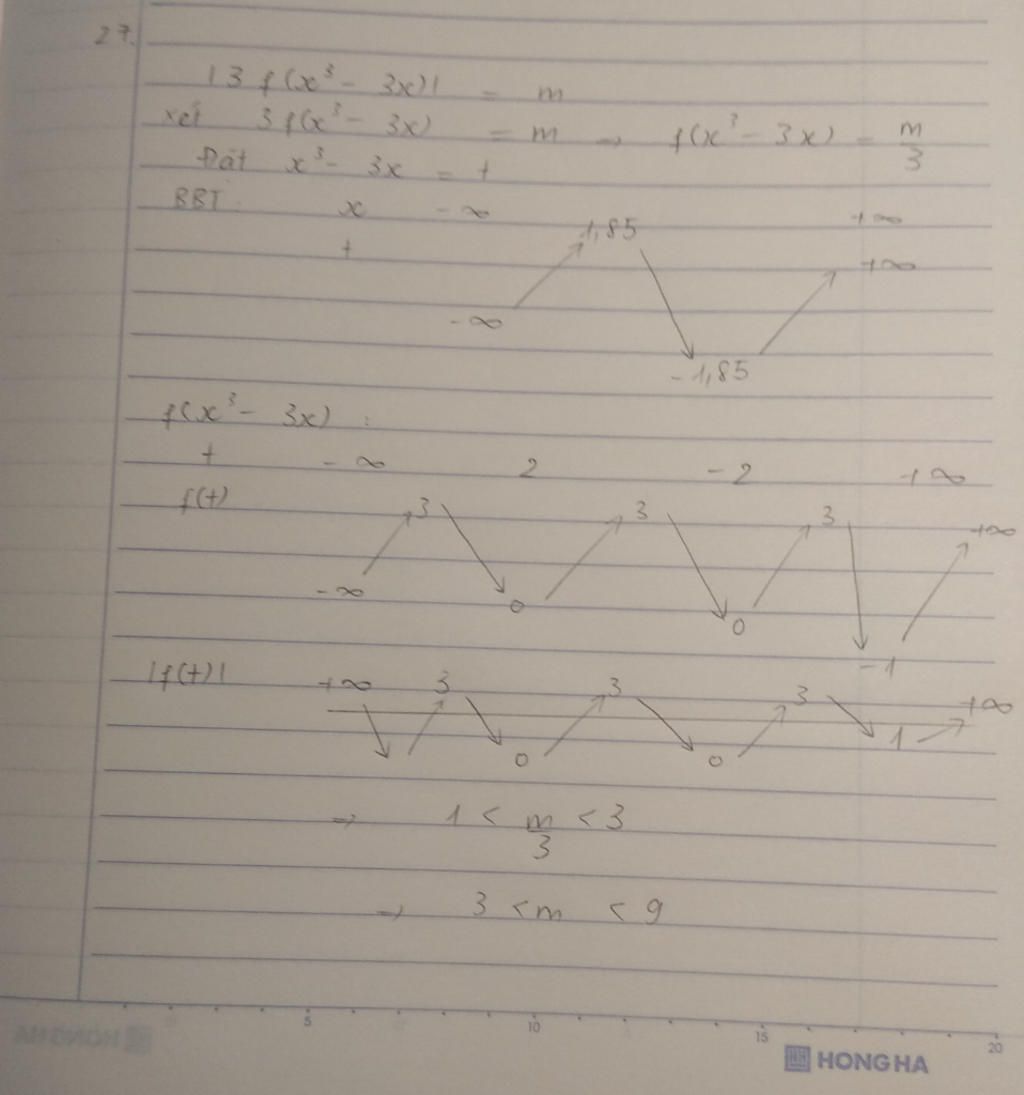 27.
|3f(x³ - 3x)| = m
xét 3f(x³ - 3x) = m → f(x³ - 3x) = m/3
Đặt x³ - 3x = t
BBT: x -∞ +∞
t -∞ 1,85 -1,85 +∞
f(x³ - 3x) :
t -∞ 2 -2 +∞
f(t) -∞ 3 0 3 0 3 -1 +∞
|f(t)| +∞ 3 0 3 0 3 1 +∞
→ 1 < m/3 < 3
→ 3 < m < 9
5 10 15 20
HONG HA